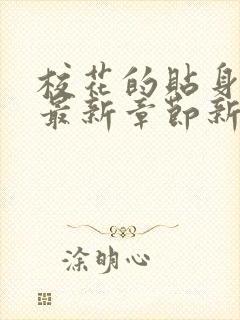 校花的贴身
最新章节新
涂明心